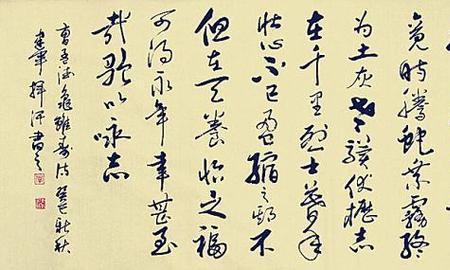 竟時騰蛇乘霧終
为土灰老驥伏櫪志
在千里烈士暮年
壮心不已盈縮之期不
但在天養怡之福
可得永年幸甚至
哉歌以咏志
曹孟德龜雖壽詩 癸巳新秋
建軍揮汗書之